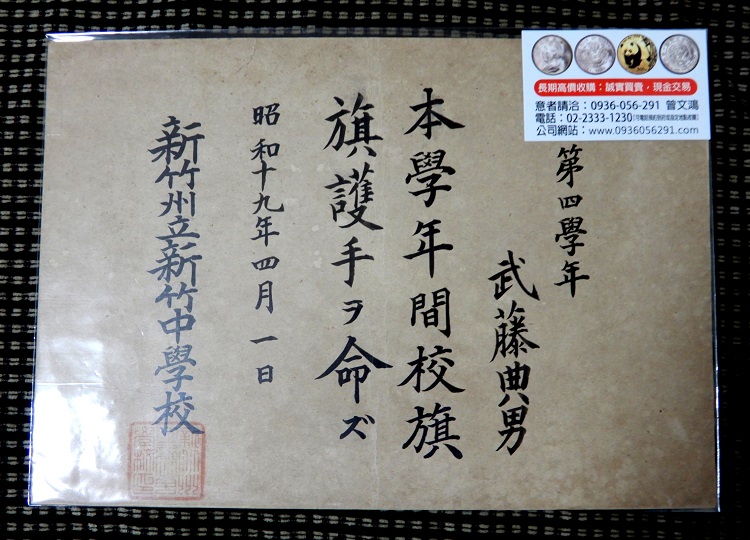 第四學年
武藤典男
本學年間校旗
旗護手ヲ命ズ
昭和十九年四月一日
新竹州立新竹中學校
長期高價收購：誠實買賣，現金交易
意者請洽：0936-056-291 曾文鴻
電話：02-2333-1230
公司網站：www.0936056291.com